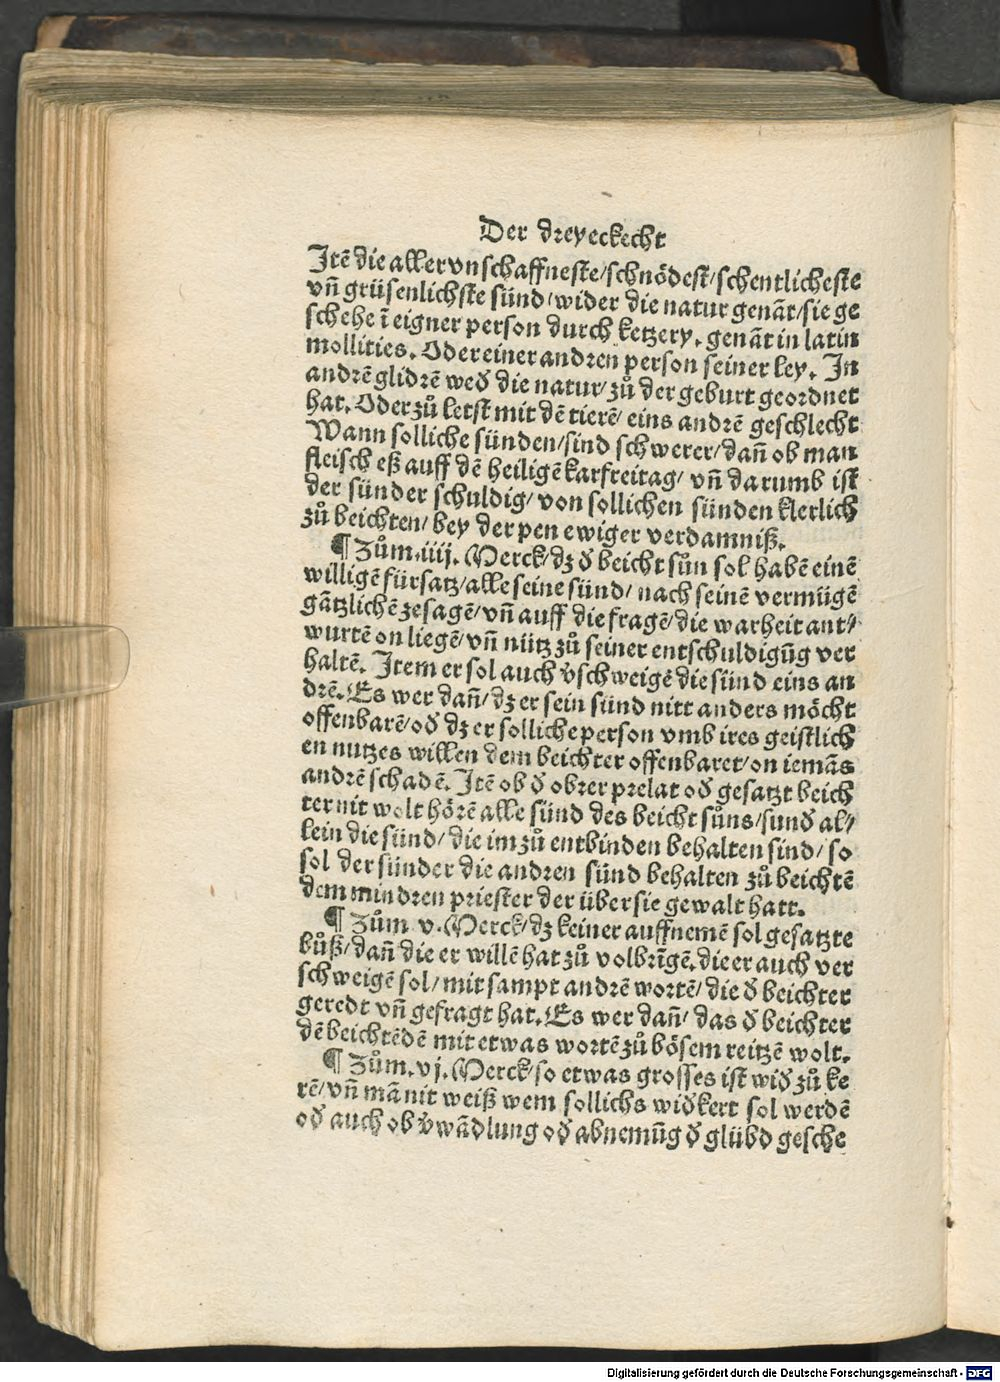 Der dreyeckecht
Itē die aller vnschaffneste/schnödest/schentlicheste
vn̄ grüsenlichste sünd/wider die natur genāt/sie ge
schehe ī eigner person durch ketzery. genāt in latin
mollities. Oder einer andren person seiner ley. In
andrē glidrē weð die natur/zů der geburt geordnet
hat. Oder zů letst mit dē tierē/eins andrē geschlecht
Wann solliche sünden/sind schwerer/dañ ob man
fleisch eß auff dē heiligē karfreitag/vn̄ darumb ist
der sünder schuldig/von sollichen sünden klerlich
zů beichten/bey der pen ewiger verdamniß.
¶ Zům .iiij. Merck/dz ð beicht sůn sol habē einē
willigē fürsatz/alle seine sünd/nach seinē vermügē
gātzlichē zesagē/vn̄ auff die fragē/die warheit ant⸗
wurtē on liegē/vn̄ nütz zů seiner entschuldigūg ver
haltē. Item er sol auch v̄schweigē die sünd eins an
drē. Es wer dañ/dz er sein sünd nitt anders möcht
offenbarē/oð dz er solliche person vmb ires geistlich
en nutzes willen dem beichter offenbaret/on iemās
andrē schadē. Itē ob ð obrer prelat oð gesatzt beich
ter nit wolt hörē alle sünd des beicht sůns/sunð al⸗
lein die sünd/die im zů entbinden behalten sind/so
sol der sünder die andren sünd behalten zů beichtē
dem mindren priester der über sie gewalt hatt.
¶ Zům v. Merck/dz keiner auffnemē sol gesatzte
bůß/dañ die er willē hat zů volbrīgē. die er auch ver
schweigē sol/mit sampt andrē wortē/die ð beichter
geredt vn̄ gefragt hat. Es wer dañ/das ð beichter
dē beichtēdē mit etwas wortē zů bösem reitzē wolt.
¶ Zům .vj. Merck/so etwas grosses ist wið zů ke
rē/vn̄ mā nit weiß wem sollichs wiðkert sol werdē
oð auch ob v̄wādlung oð abnemūg ð glübd gesche
Digitalisierung gefördert durch die Deutsche Forschungsgemeinschaft - DFG